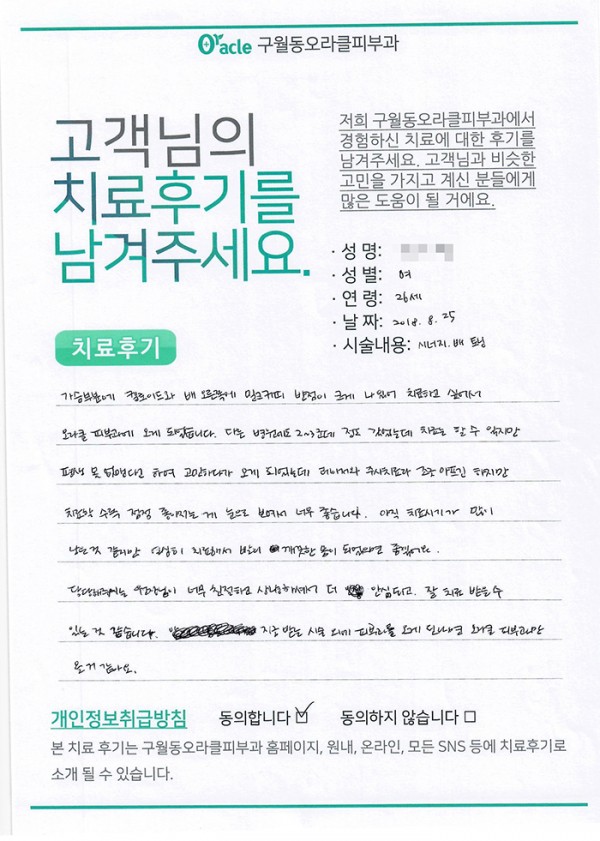 Oracle 구월동오라클피부과
고객님의
치료후기를
남겨주세요.
저희 구월동오라클피부과에서
경험하신 치료에 대한 후기를
남겨주세요. 고객님과 비슷한
고민을 가지고 계신 분들에게
많은 도움이 될 거에요.
· 성 명:
· 성 별: 여
· 연 령: 26세
· 날 짜: 2018. 8. 25
· 시술내용: 시너지. 배
치료후기
가슴부분에 켈로이드와 배 오른쪽에 밀크커피 반점이 크게 나있어 치료하고 싶어서
오라클 피부과에 오게 되었습니다. 다른 병원에도 2~3군데 정도 갔었는데 치료는 할 수 있지만
평생 못 없앤다고 하여 고민하다가 오게 되었는데 레이저와 주사치료가 조금 아프긴 하지만
치료할 수록 점점 좋아지는 게 눈으로 보여서 너무 좋습니다. 아직 치료시기가 많이
남은 것 같지만 열심히 치료해서 빨리 깨끗한 몸이 되었으면 좋겠어요.
담당해주시는 원장님이 너무 친절하고 상냥하셔서 더 안심되고. 잘 치료 받을 수
있는 것 같습니다. 지금 받는 시술 외에 피부과를 오게 된다면 오라클 피부과만
올 거 같아요.
개인정보취급방침 동의합니다 ☑ 동의하지 않습니다 □
본 치료 후기는 구월동오라클피부과 홈페이지, 원내, 온라인, 모든 SNS 등에 치료후기로
소개 될 수 있습니다.